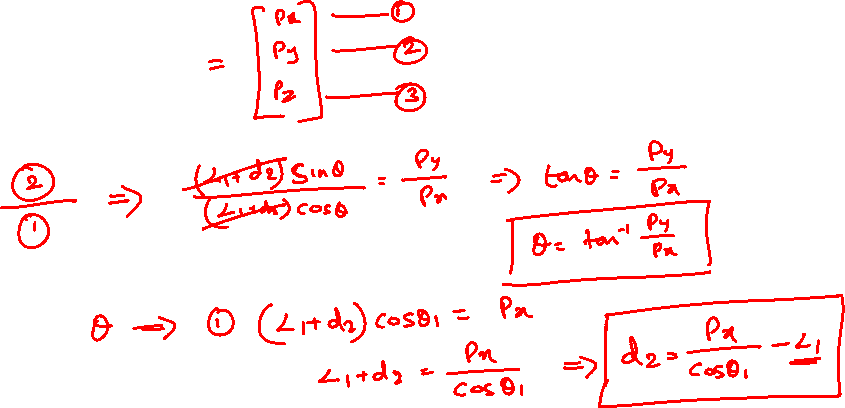 = [Px —— ①
Py —— ②
Pz] —— ③
②/① ⇒ (L1+d2) Sinθ / (L1+d2) cosθ = Py/Px ⇒ tanθ = Py/Px
θ = tan⁻¹ Py/Px
θ → ① (L1+d2) cosθ1 = Px
L1+d2 = Px/cosθ1 ⇒ d2 = Px/cosθ1 - L1